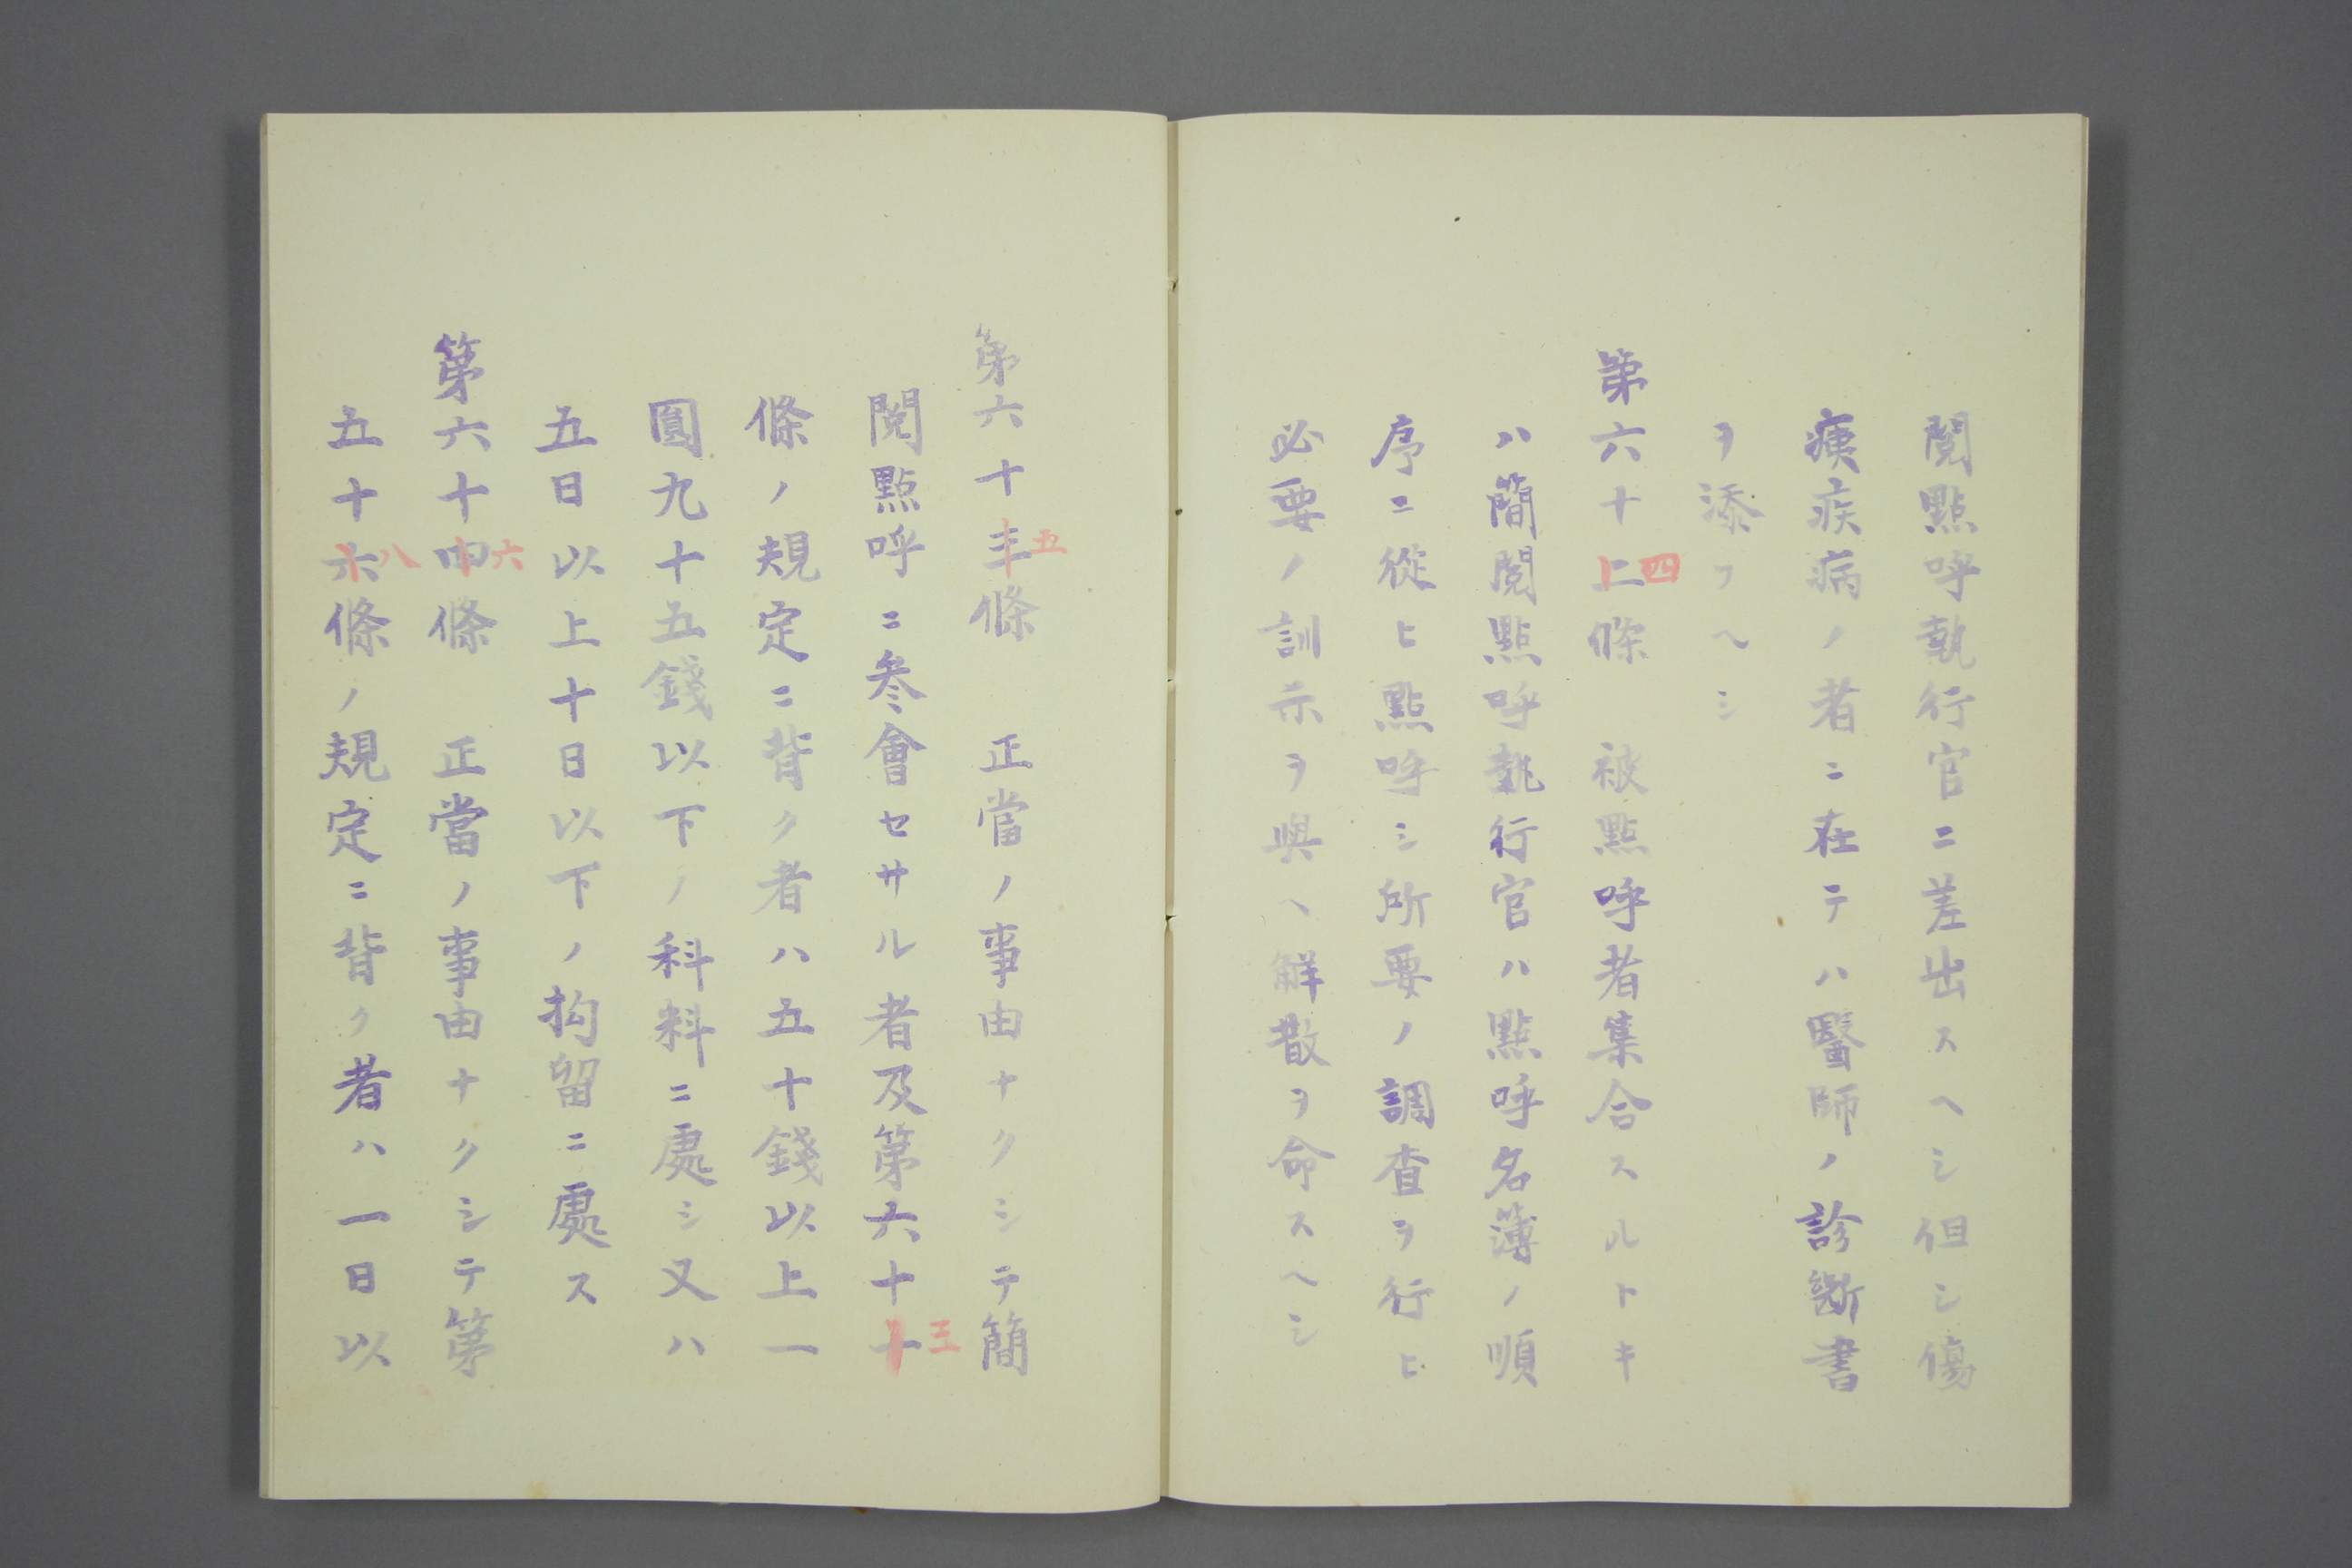 閲點呼執行官ニ差出スヘシ但シ傷
痍疾病ノ者ニ在テハ醫師ノ診斷書
ヲ添フヘシ
第六十二四條　被點呼者集合スルトキ
ハ簡閲點呼執行官ハ點呼名簿ノ順
序ニ從ヒ點呼シ所要ノ調査ヲ行ヒ
必要ノ訓示ヲ與ヘ解散ヲ命スヘシ
第六十三五條　正當ノ事由ナクシテ簡
閲點呼ニ参會セサル者及第六十一三
條ノ規定ニ背ク者ハ五十錢以上一
圓九十五錢以下ノ科料ニ處シ又ハ
五日以上十日以下ノ拘留ニ處ス
第六十四六條　正當ノ事由ナクシテ第
五十六八條ノ規定ニ背ク者ハ一日以